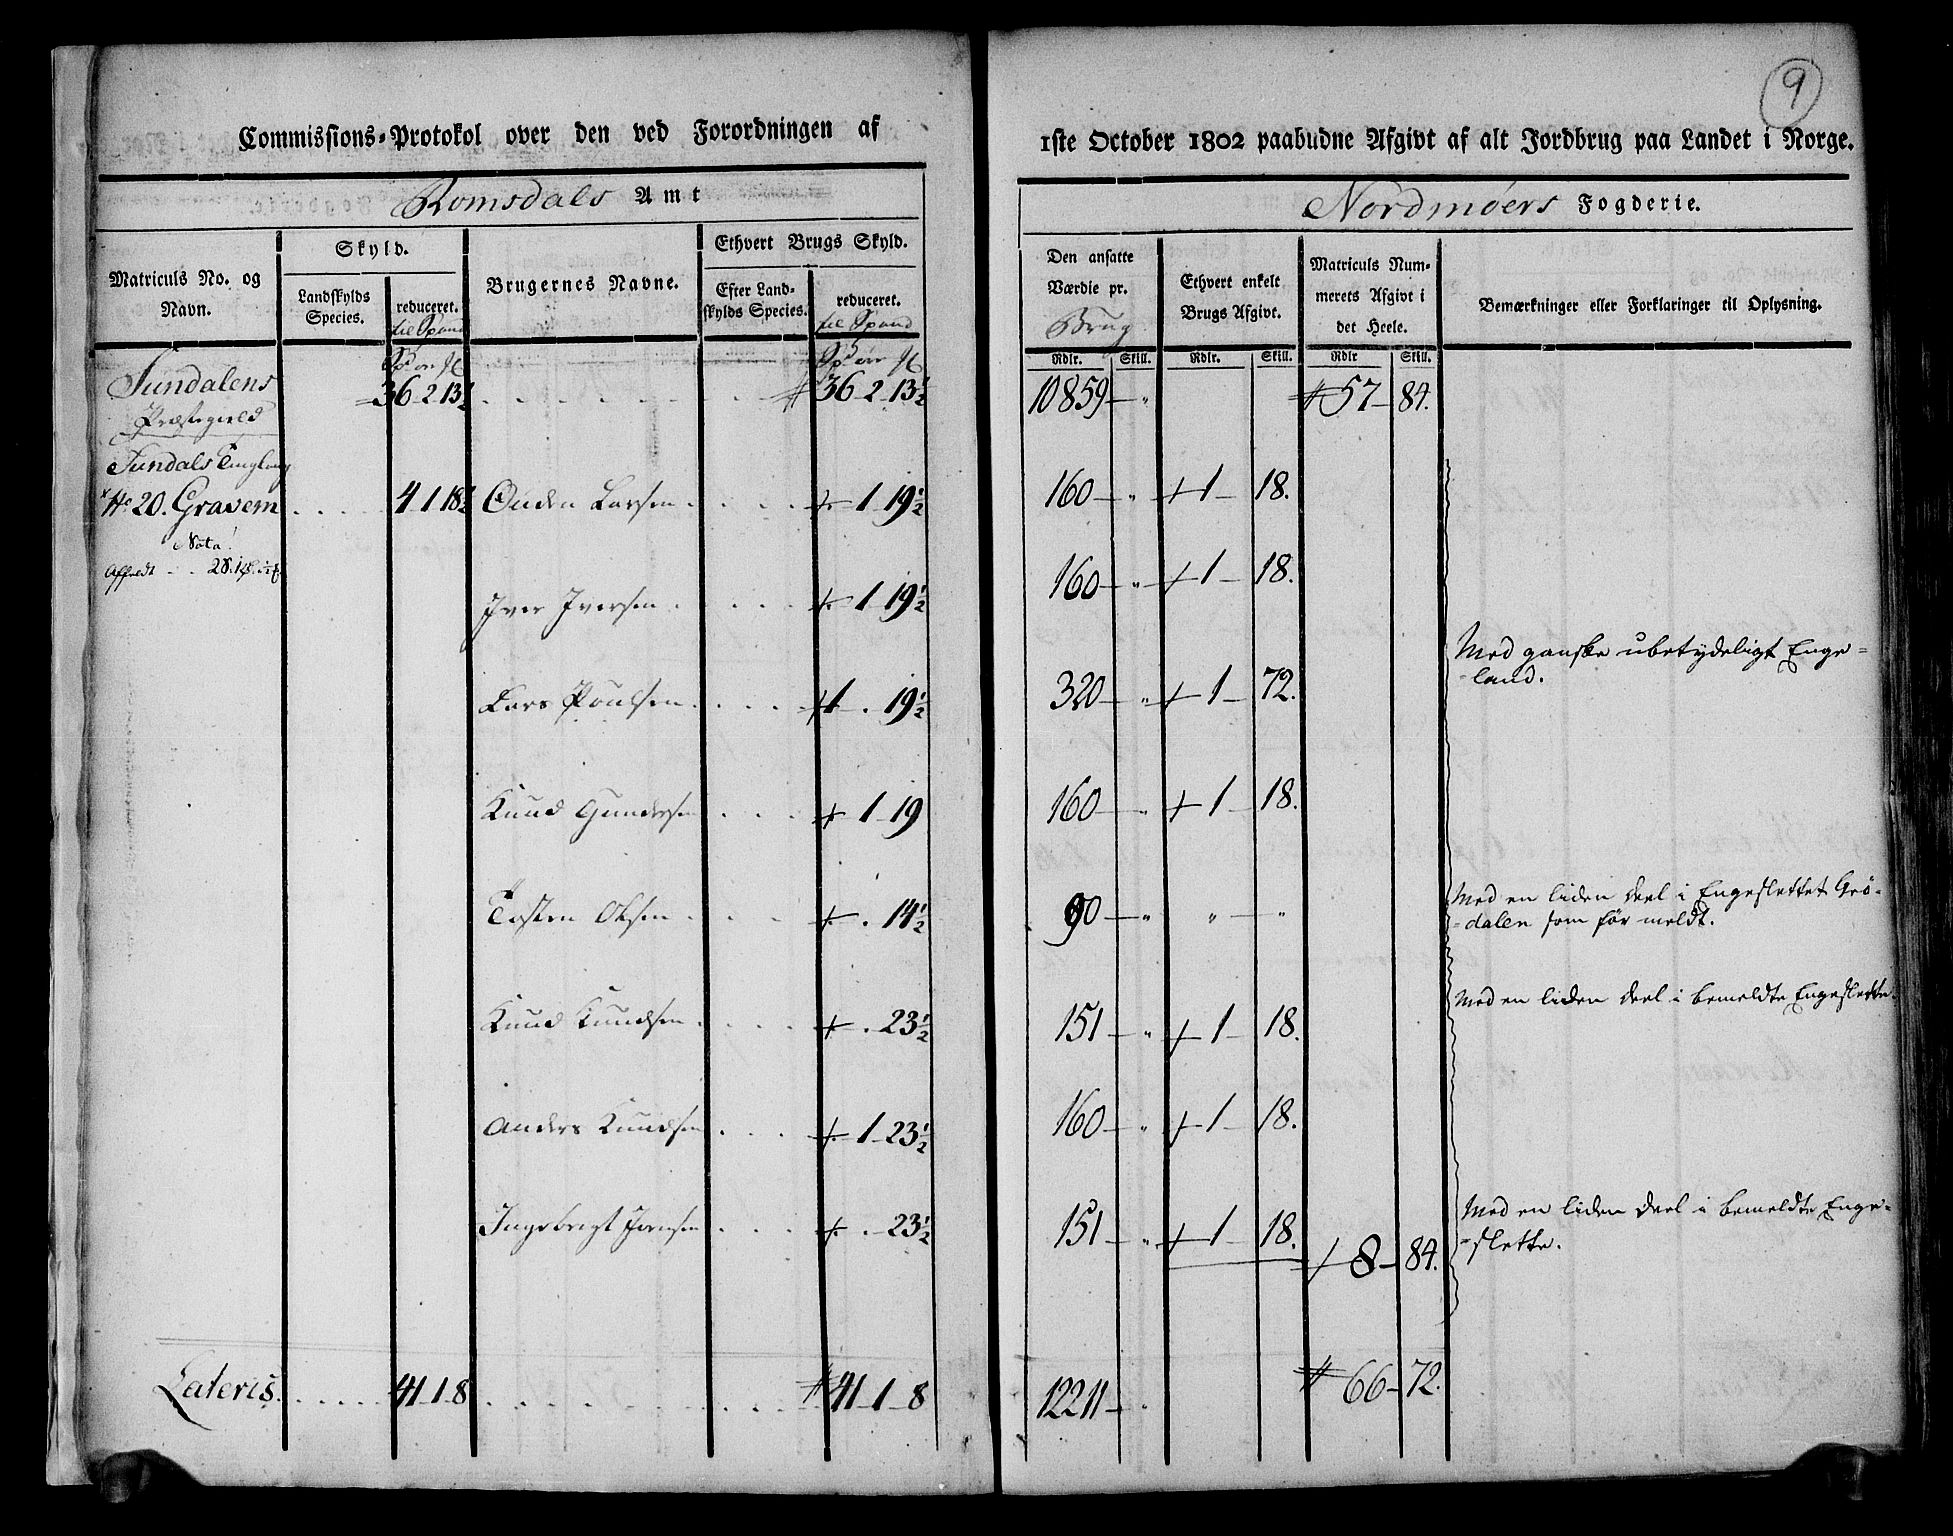 9
Commissions-Protokol over den ved Forordningen af
1ste October 1802 paabudne Afgivt af alt Jordbrug paa Landet i Norge.
Romsdals Amt
Nordmøers Fogderie.
Matriculs No. og Navn.
Skyld.
Landskylds Species.
reduceret.
til Spand
Brugernes Navne.
Ethvert Brugs Skyld.
Efter Landskylds Species.
reduceret.
til Spand
Den ansatte Værdie pr.
Brug
Ethvert enkelt Brugs Afgivt.
Matriculs Nummerets Afgivt i det Heele.
Bemærkninger eller Forklaringer til Oplysning.
Rdlr. Skill. Rdlr. Skill. Rdlr Skill.
Sundalens 36-2-13½ 36-2-13½ 10859 57-84.
Præstegield
Sundals Tinglaug
No 20. Gravem 4 1 18½ Ouden Larsen 1-19½ 160 1-18.
Nota!
Iver Iversen 1-19½ 160 1-18.
Lars Poulsen 1. 19½ 320 1-72. Med ganske ubetydeligt Enge-
-land.
Knud Gundersen 1-19 160 1-18.
Tosten Olsen . 14½ 90 Med en liden deel i Engeslettet Grø-
-dalen som før meldt.
Knud Knudsen . 23½ 151 1 18. Med en liden deel i bemeldte Engeslette.
Anders Knudsen 1-23½ 160 1 18.
Ingebrigt Jonsen .-23½ 151 1 18. Med en liden deel i bemeldte Enge-
-slette.
8-84.
Lateris. 41-1-8 41-1-8 12211 66-72.